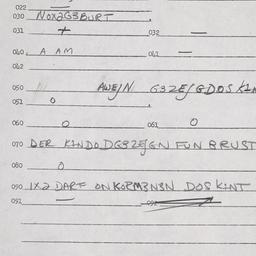 022 —
030 NOX2G3BURT
031 + 032 —
040 A AM 041 —
042
050 AWEJN G3ZEJGDOS KIN
051 O
060 O 061 O
070 DER KINDO DG3ZEJGN FUN BRUST
080 O
090 IX2 DARF ONKORM3N3N DOS KINT
091 —